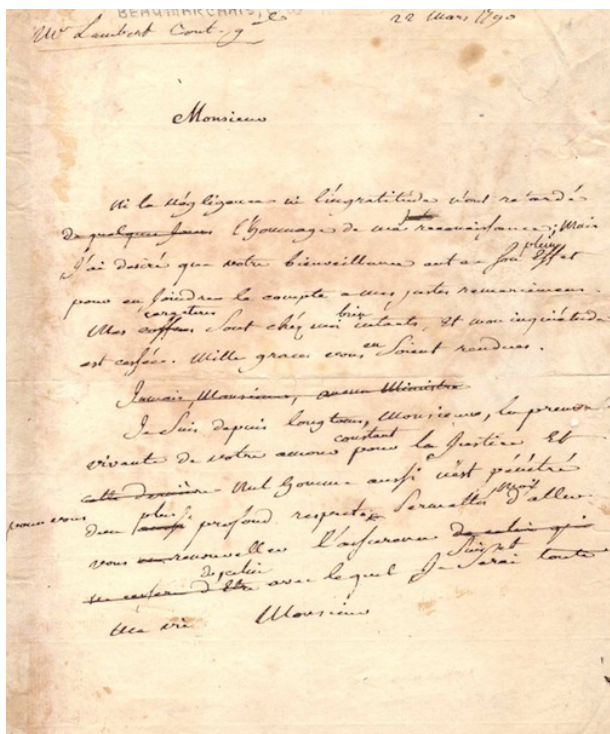 BEAUMARCHAIS,
Mr Lambert Cont. g.al
22 Mars 1790
Monsieur
Ni la négligence ni l'ingratitude n'ont retardé
de quelques jours l'hommage de ma reconnaissance; Mais
plein
J'ai desiré que votre bienveillance eut son Effet
pour en joindre le compte a mes justes remerciemens.
caracteres bien
Mes coffres Sont chés moi intacts, Et mon inquiétude
en
est cessée. Mille graces vous Soient rendues.
Jamais, Monsieur, aucun Ministre
Je Suis depuis longtems, Monsieur, la preuve
constant
vivante de votre amour pour la Justice Et
cette derniere Nul homme aussi n'est pénétré
pour vous plus moi
d'un aussi profond respect Permettés d'aller
vous en renouveller l'assurance de celui qui
de celui Suis et
ne cessera d'Etre avec lequel Je Serai toute
ma vie Monsieur